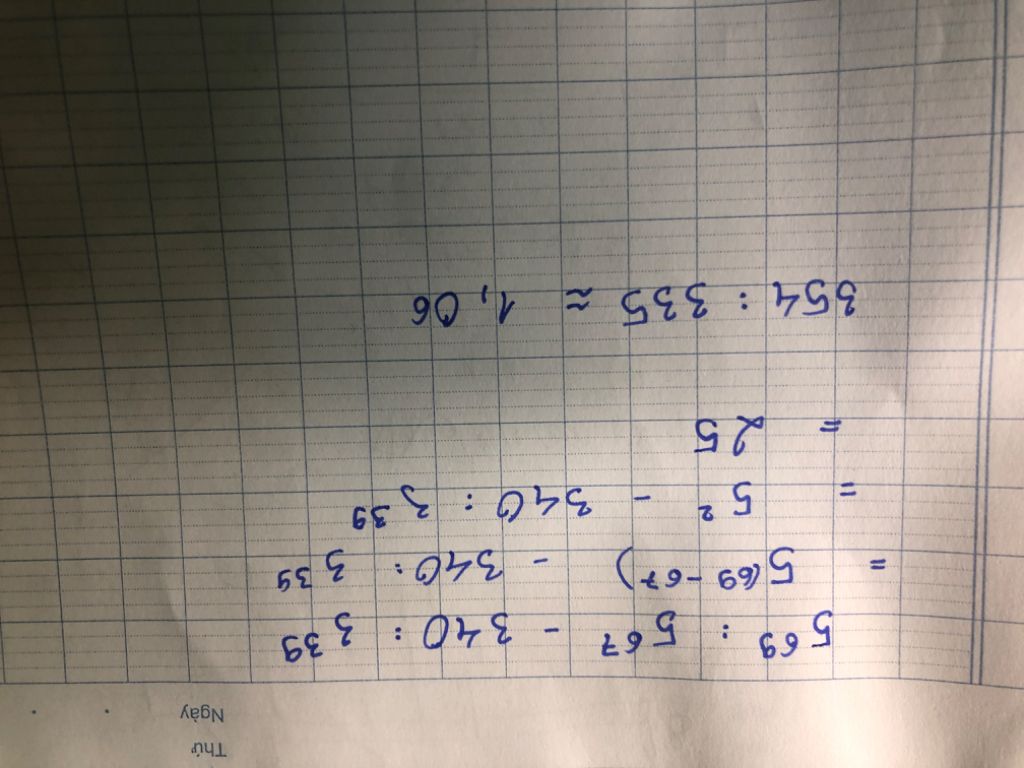 Thứ
Ngày . .
5⁶⁹ : 5⁶⁷ - 340 : 3³⁹
= 5⁽⁶⁹⁻⁶⁷⁾ - 340 : 3³⁹
= 5² - 340 : 3³⁹
= 25
354 : 335 ≈ 1,06